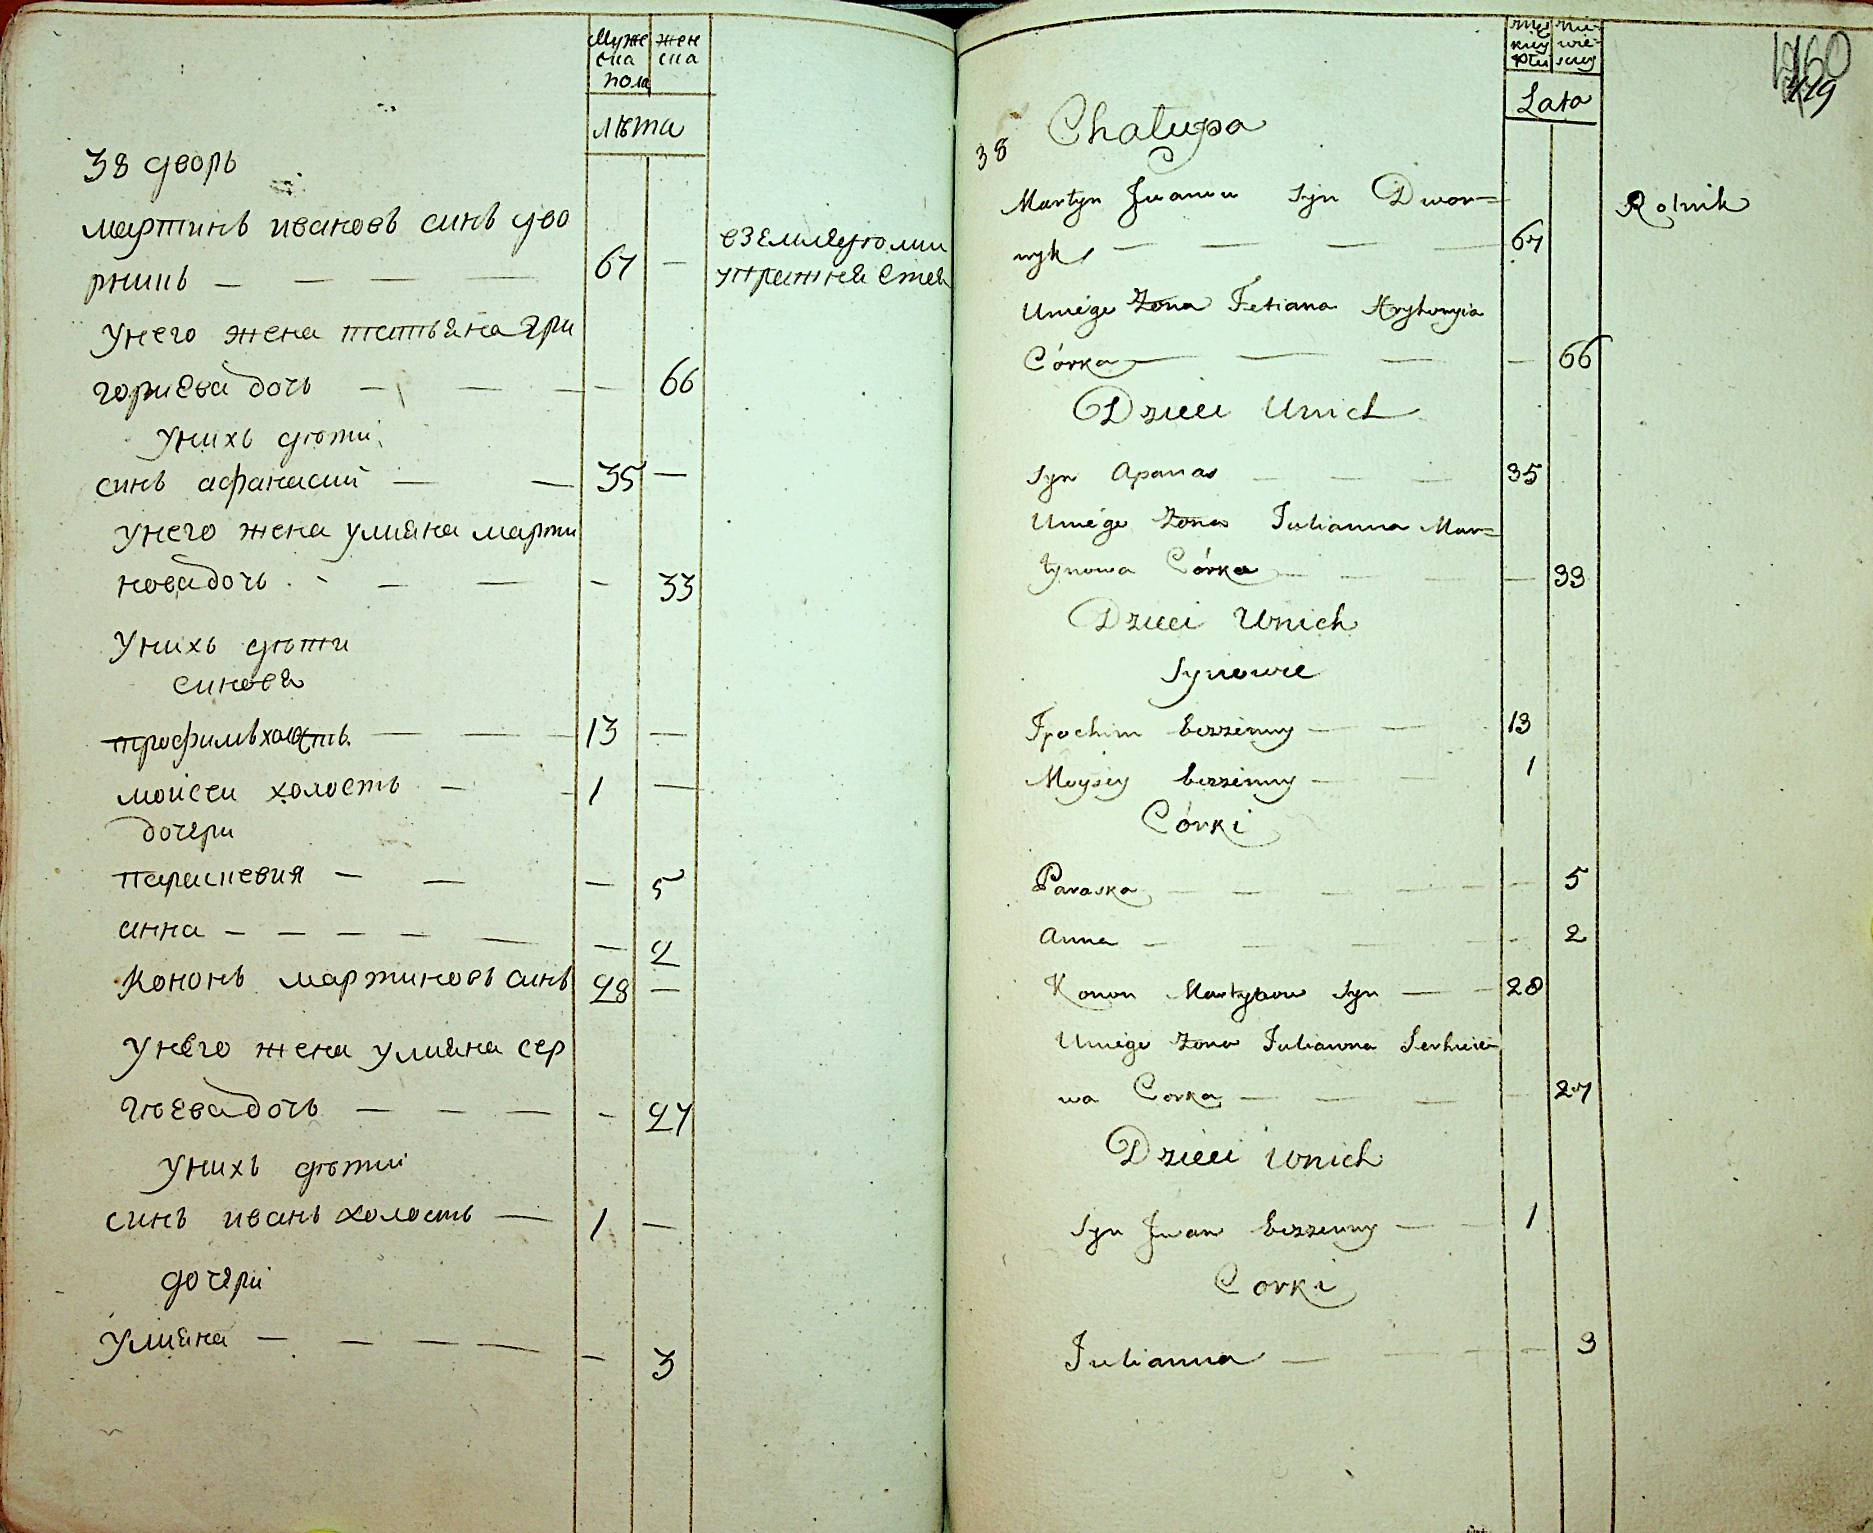 Муже жен
ска ска
пола
лѣта
38 дворь
мартинь ивановь синь дво
рникь — — — — 67 —
вземледелии
упражняется
Унего жена татьяна гри
гориева дочь — — — — 66
Унихь дѣти
синь афанасий — — 35 —
Унего жена улияна марти
нова дочь — — — — 33
Унихь дѣти
синовя
трофимь холость — — — 13 —
моисеи холость — — 1 —
дочери
параскевия — — — 5
анна — — — — — — 2
Кононь мартиновь синь 28 —
Унего жена улияна сер
гѣева дочь — — — — — 27
Унихь дѣтий
синь ивань холость — 1 —
дочери
Улияна — — — — — 3
męz nie-
kiey wie-
płci sciey
Lata
38 Chałupa
Martyn Jwanow Syn Dwor=
nyk — — — — 67
Rolnik
Uniego Żona Tetiana Hryhoryia
Córka — — — — 66
Dzieci Unich
Syn Apanas — — — 35
Uniego Żona Julianna Mar=
tynowa Córka — — — — 33
Dzieci Unich
Synowie
Trochim bezżenny — — 13
Moysey bezżenny — — 1
Córki
Paraska — — — — — — 5
Anna — — — — — 2
Konon Martynow Syn — — 28
Uniego Żona Julianna Serhieie=
wa Corka — — — — 27
Dzieci Unich
Syn Jwan bezzenny — — 1
Corki
Julianna — — — — 3